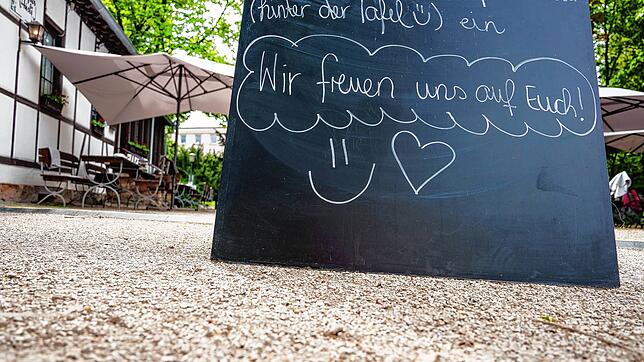 (hinter der Tafel ü) ein
Wir freuen uns auf Euch!